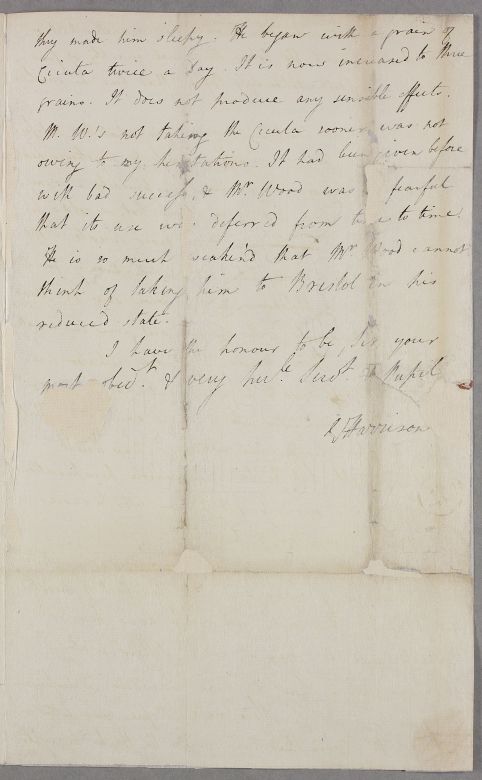 they made him sleepy. He began with a grain of
Cicuta twice a day. It is now increased to three
grains. It does not produce any sensible effects.
Mr. W.'s not taking the Cicuta sooner was not
owing to my hesitations. It had been given before
with bad success, & Mr Wood was fearful
that its use was deferred from time to time.
He is so much weaken'd that Mr Wood cannot
think of taking him to Bristol in his
reduced state.
I have the honour to be, Sir your
most obedt. & very hule. Servt. & Pupil
Harrison